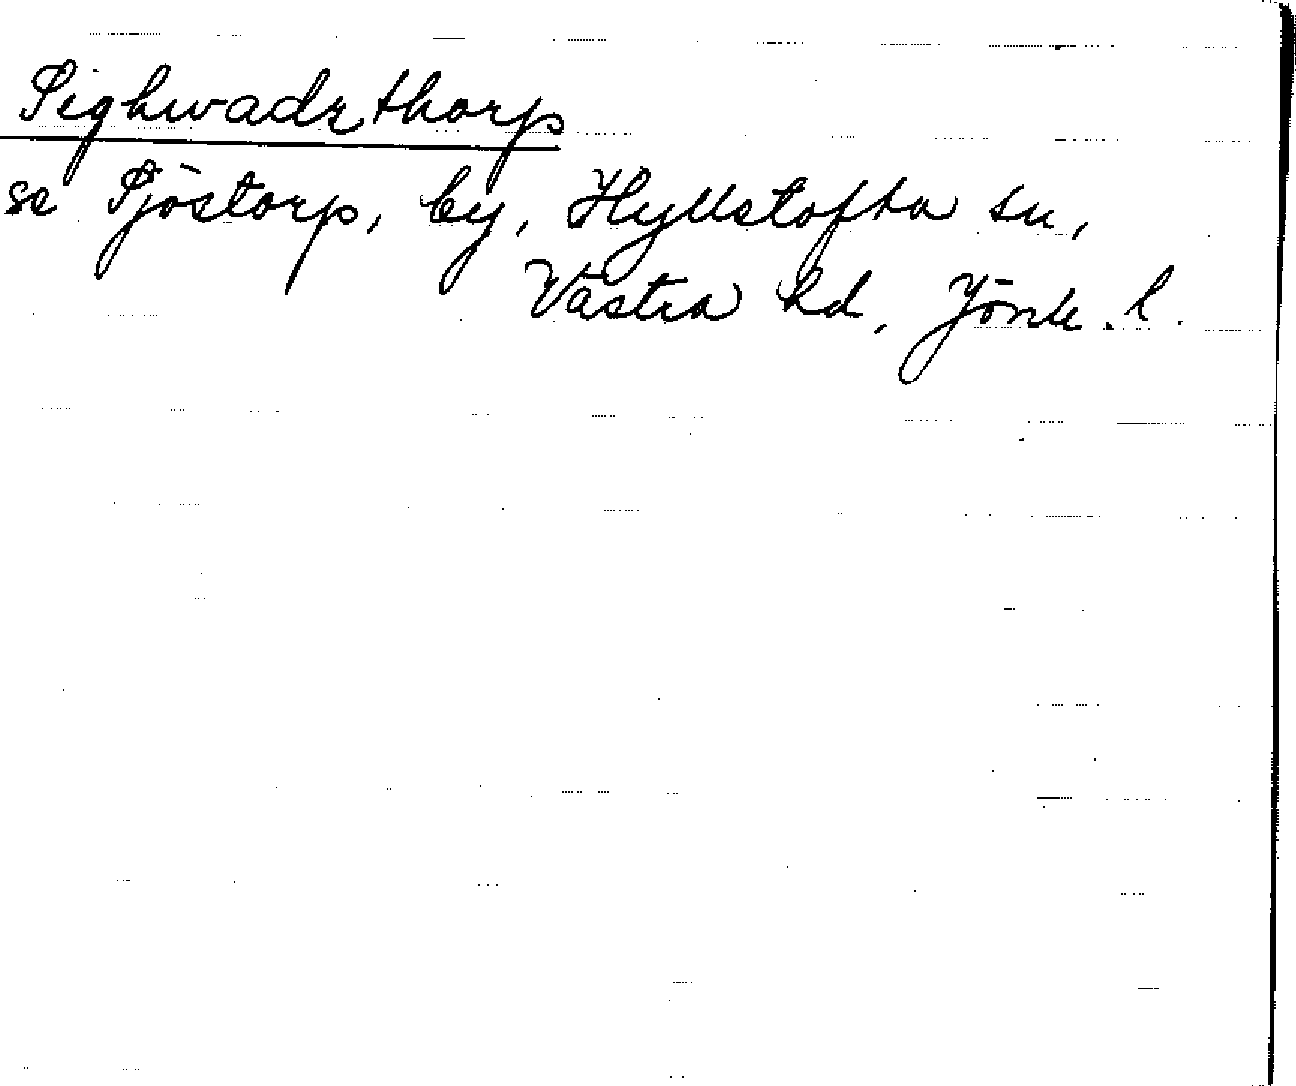 Sighwadzthorp
se Sjöstorp, by, Hyllstofta sn,
Västra hd, Jönk. l.